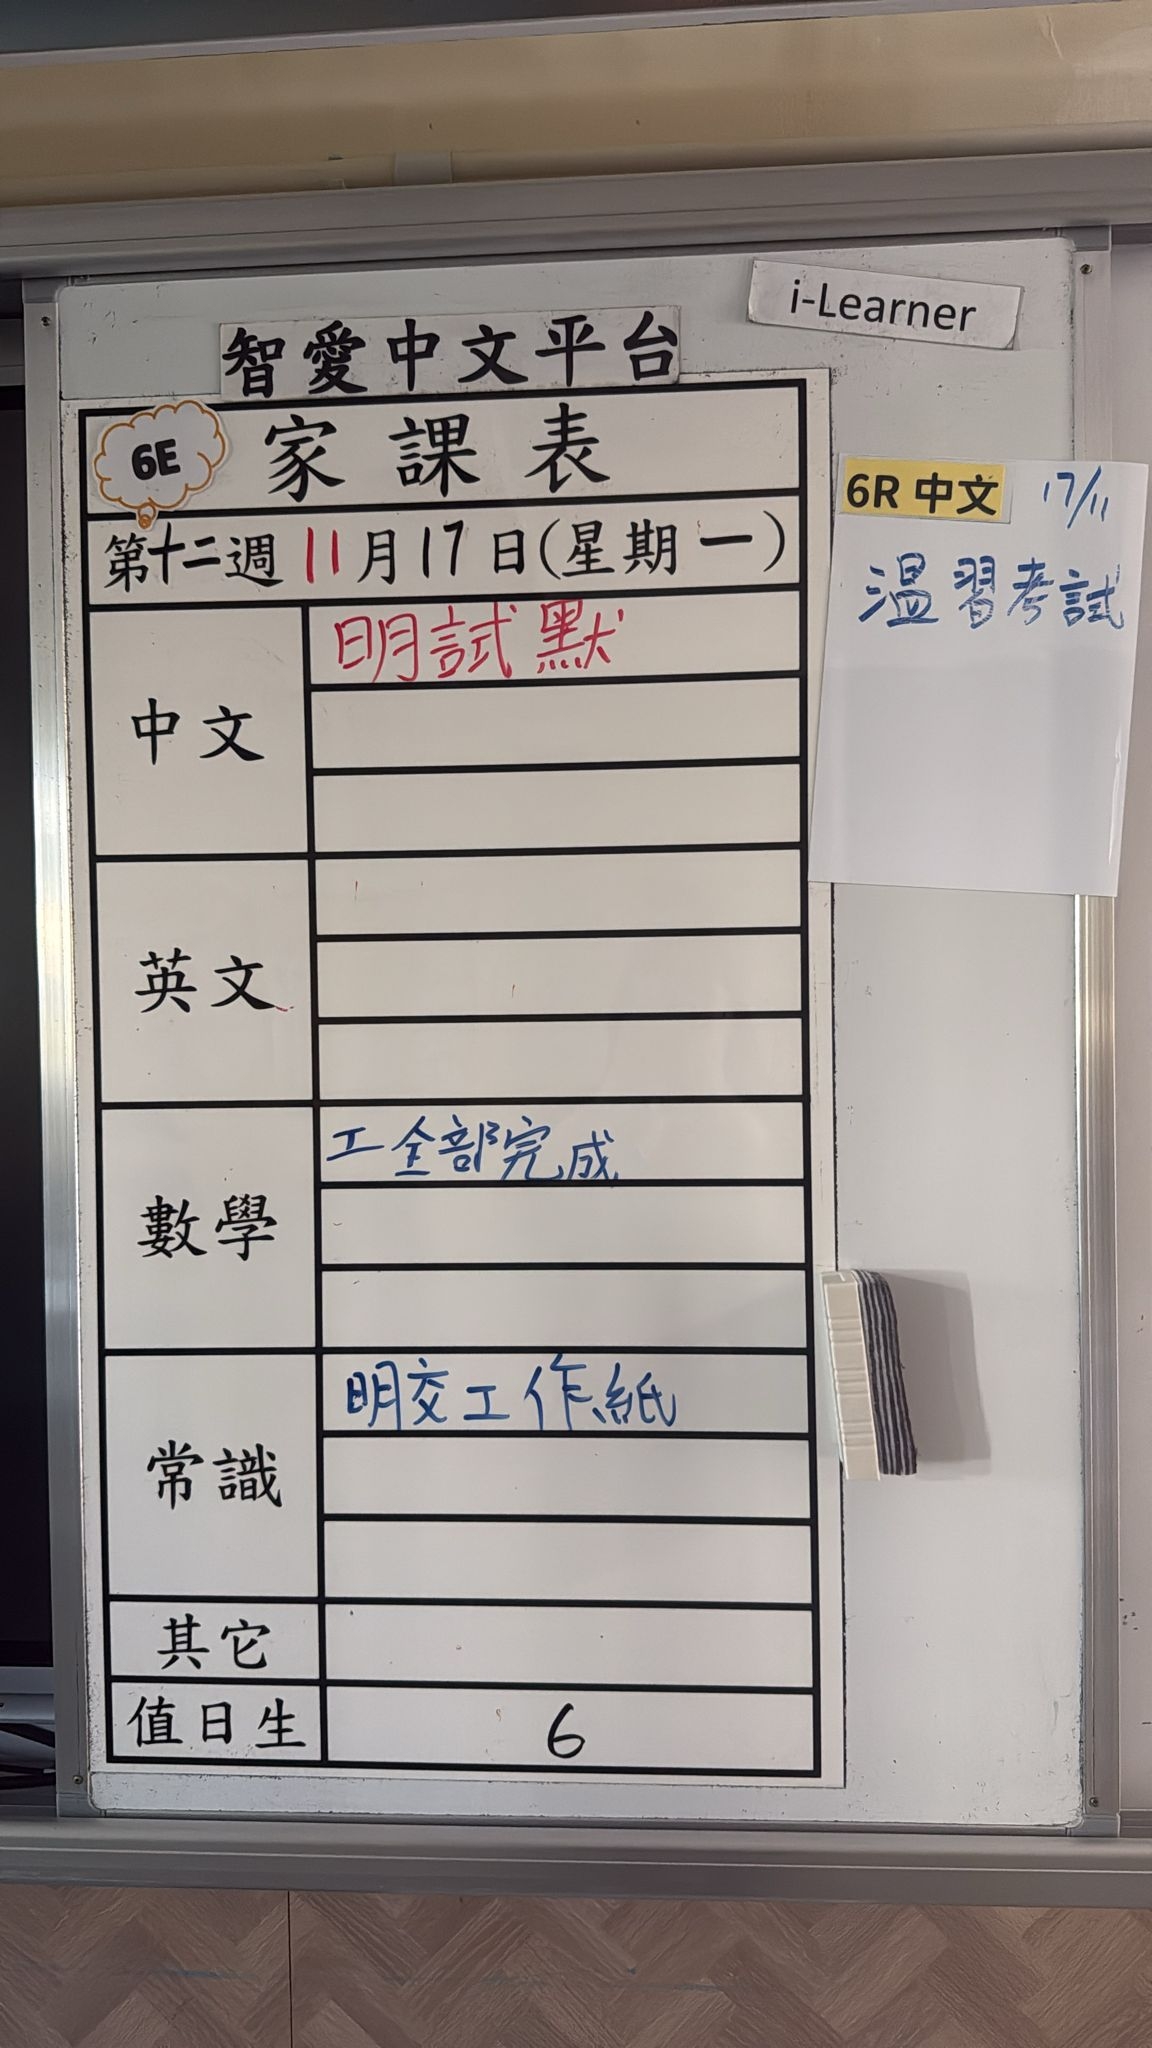 i-Learner
智愛中文平台
6E 家課表
第十二週 11月17日(星期一)
中文 明試默
英文
數學 工全部完成
常識 明交工作紙
其它
值日生 6
6R 中文 17/11
溫習考試